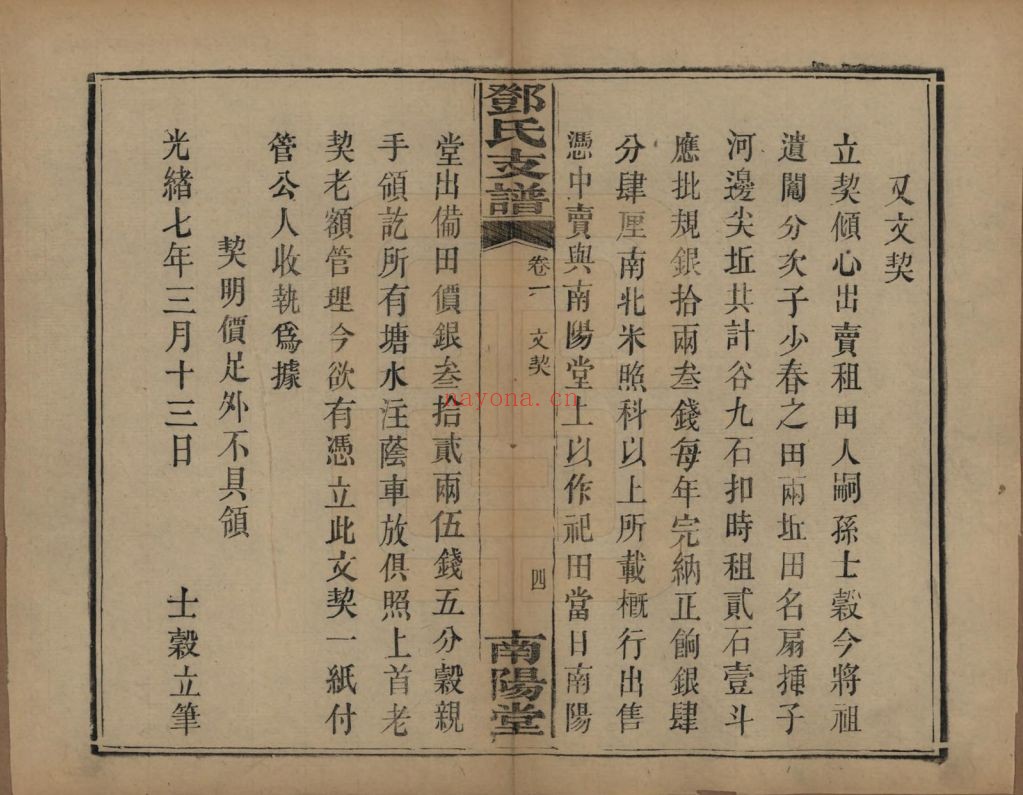 又文契
立契傾心出賣租田人嗣孫士穀今將祖
遺鬮分次子少春之田兩坵田名扇揷子
河邊尖坵共計谷九石扣時租貳石壹斗
應批規銀拾兩叁錢每年完納正餉銀肆
分肆厘南北米照科以上所載槪行出售
憑中賣與南陽堂上以作祀田當日南陽
鄧氏支譜
卷一
文契
四
南陽堂
堂出備田價銀叁拾貳兩伍錢五分穀親
手領訖所有塘水注蔭車放俱照上首老
契老額管理今欲有憑立此文契一紙付
管公人收執爲據
契明價足外不具領
光緒七年三月十三日
士穀立筆
nayona.cn